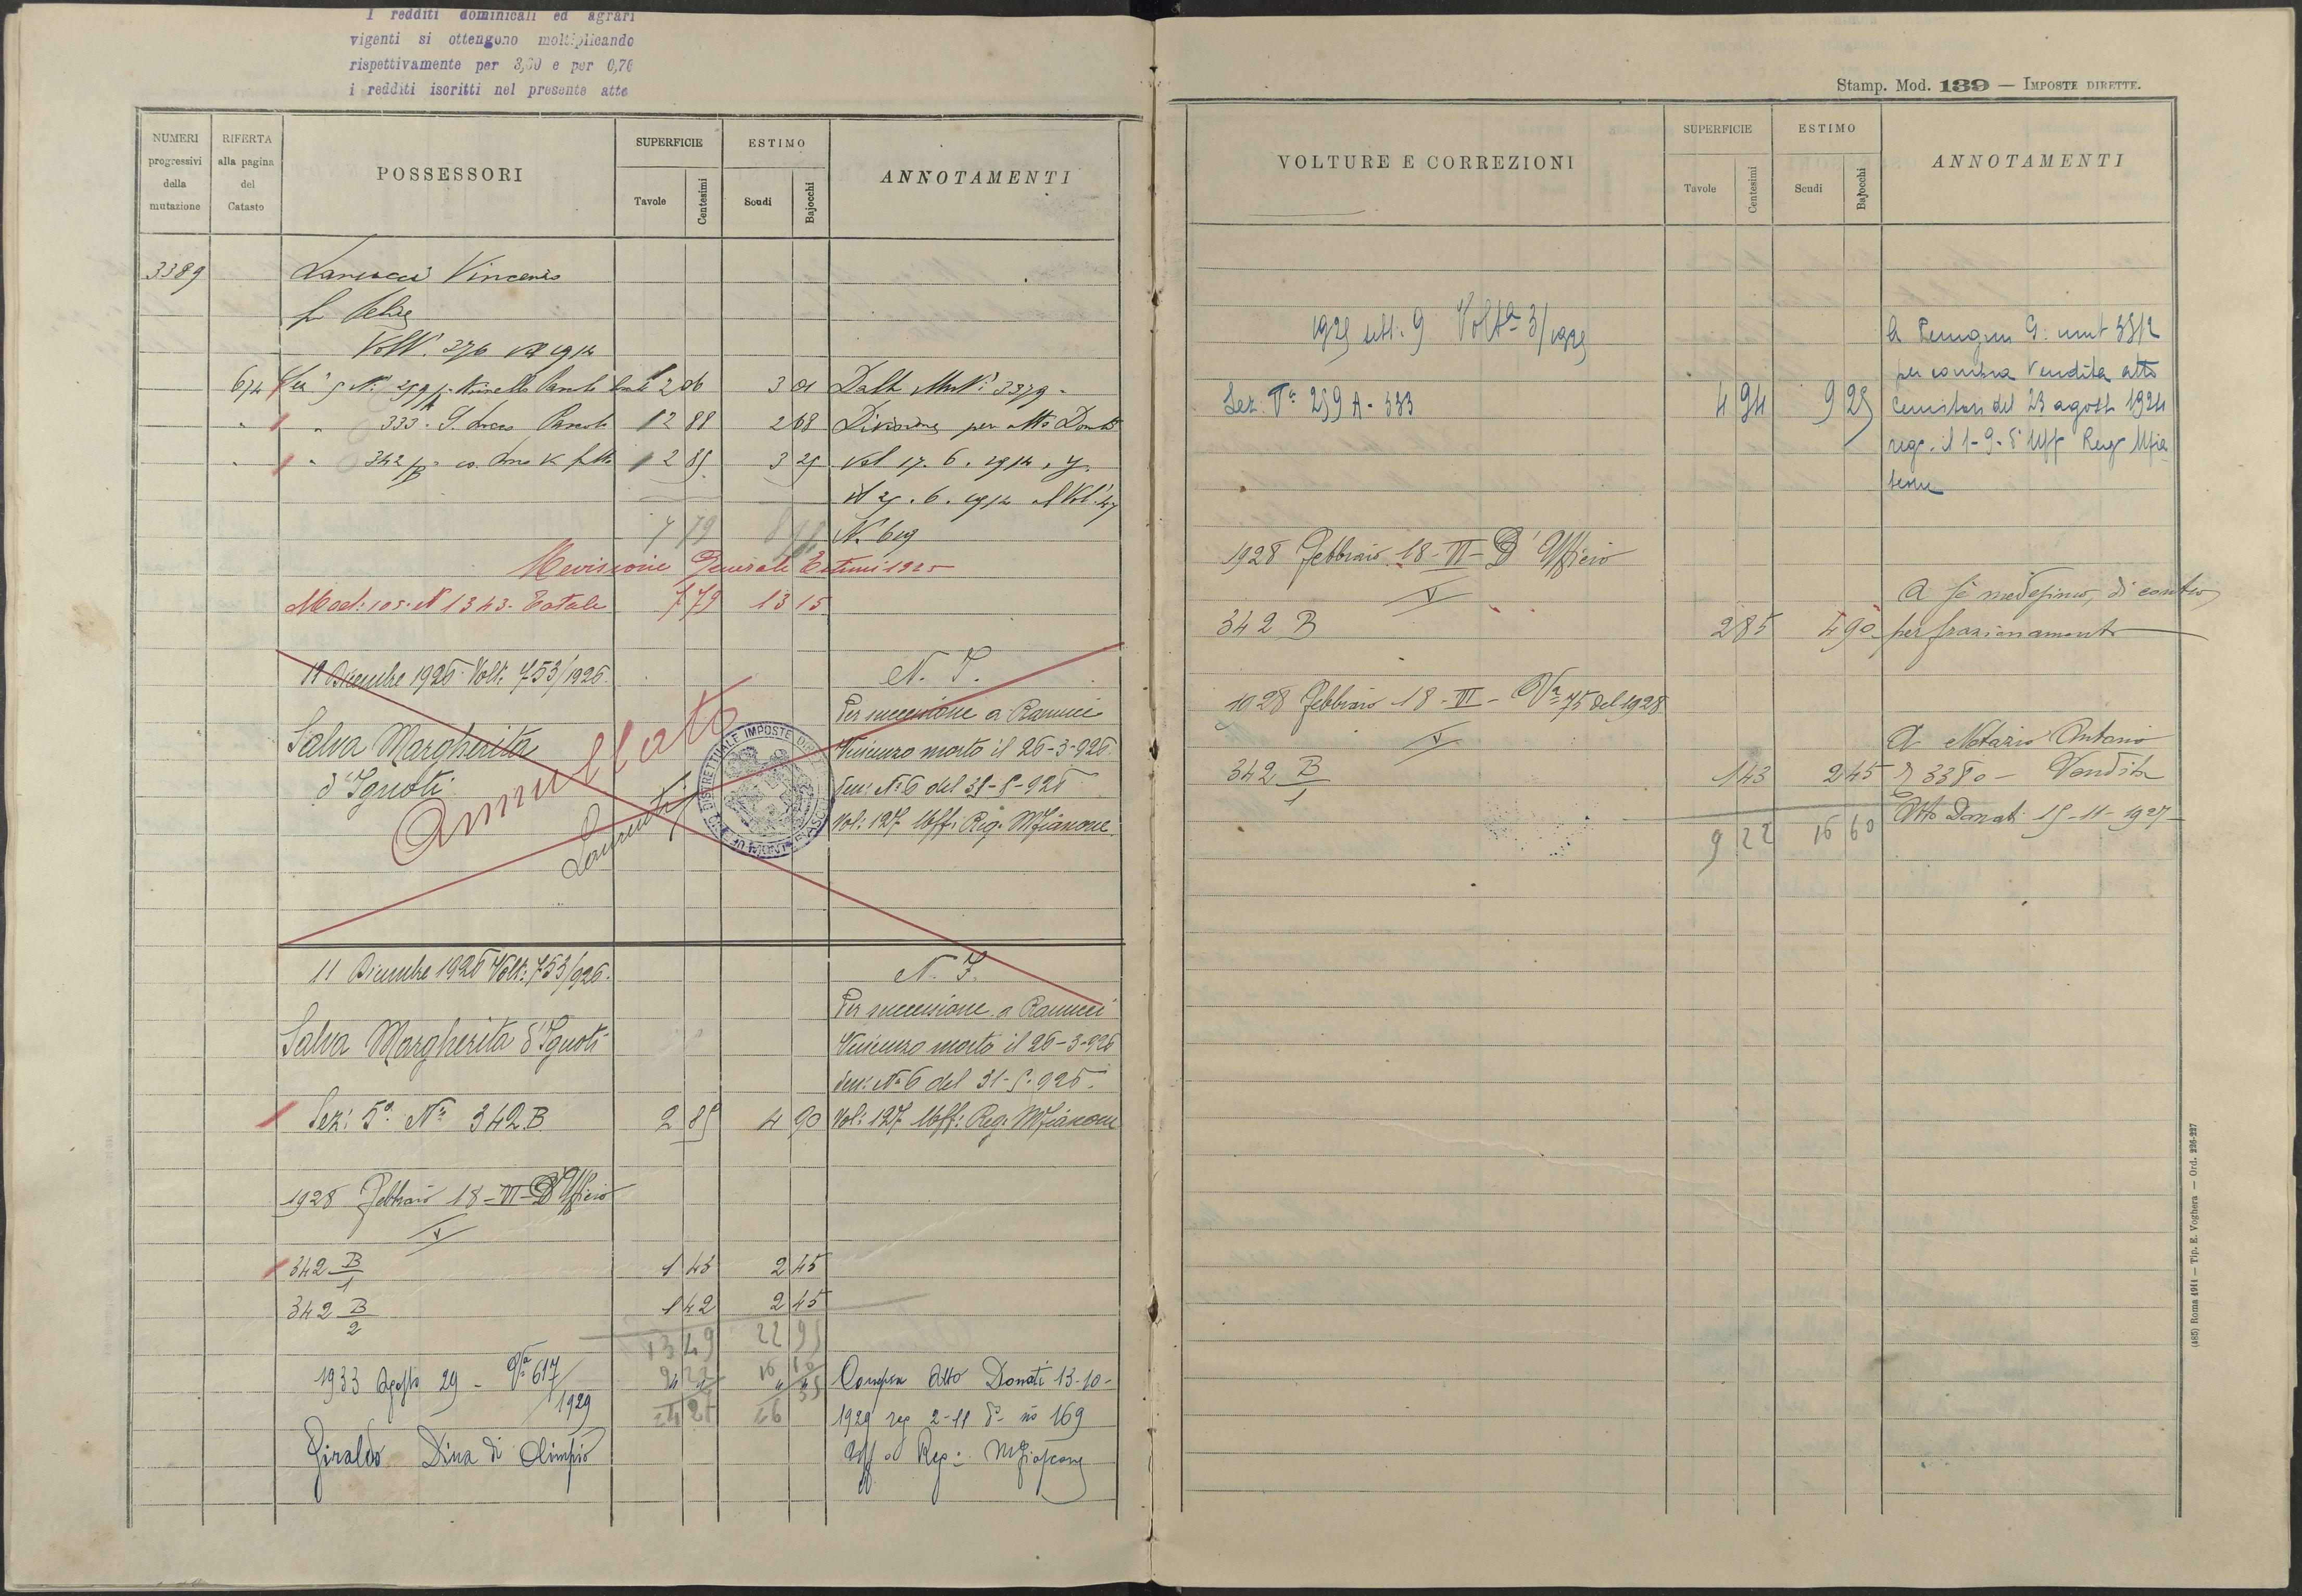 I redditi dominicali ed agrari
vigenti si ottengono moltiplicando
rispettivamente per 3,60 e per 0,76
i redditi iscritti nel presente atto
NUMERI progressivi della mutazione
RIFERTA alla pagina del Catasto
POSSESSORI
SUPERFICIE
Tavole Centesimi
ESTIMO
Scudi Bajocchi
ANNOTAMENTI
3389 Vincenzo
fu
Volt. 276 del 1914
674 Sez. 5 N. 259 2 06 3 01 Dalla Mut. 3379
" " 333 2 88 2 68 Divisione per atto Donati
" " 342 2 85 3 29 del 17.6.1914
il 29.6.1914 al Vol. 47
7 79 N. 619
Revisione Generale Estimi 1925
Mod: 105: N 1343. Totale 7 79 13 15
11 Dicembre 1926 Volt. 753/1926. N. T.
Per successione a Ranucci
Salva Margherita Vincenzo morto il 26-3-926
d'Ignoti Den: N. 6 del 31-5-926
Annullato
Vol: 127 Uff: Reg. Mfiascone
DISTRETTUALE IMPOSTE DIR
11 Dicembre 1926 Volt: 753/926. N. T.
Per successione a Ranucci
Salva Margherita d'Ignoti Vincenzo morto il 26-3-926
Den: N. 6 del 31-5-926.
Sez: 5ª Nº 342 B 2 85 4 90 Vol: 127 Uff: Reg: Mfiascone
1928 Febbraio 18-VI-D'Ufficio
V
342 B/1 1 43 2 45
342 B/2 1 42 2 45
13 49 22 95
9 22 16
1933 Agosto 29 - Vª 617/1929 Compra Atto Donati 13-10-
24 26 1929 reg 2-11 dº nº 169
Giraldo Dina di Olimpio Uff o Reg: Mfiascone
Stamp. Mod. 139 — IMPOSTE DIRETTE.
VOLTURE E CORREZIONI
SUPERFICIE
Tavole Centesimi
ESTIMO
Scudi Bajocchi
ANNOTAMENTI
1925 sett. 9 Voltª 3/1925 G. mut 3312
per compra Vendita atto
Sez: Vª 259 A - 333 4 94 9 25 del 23 agosto 1924
reg. il 1-9-dº Uff Reg Mfia
scone
1928 Febbraio 18-VI-D'Ufficio
V A sé medesimo, di contro,
342 B 2 85 4 90 per frazionamento
1928 Febbraio 18-VI-Vª 75 del 1928
V A Notazio Antonio
342 B/1 1 43 2 45 3380 - Vendita
Atto Donati 15-11-1927
9 22 16 60
(485) Roma 1911 — Tip. E. Voghera — Ord. 226-227